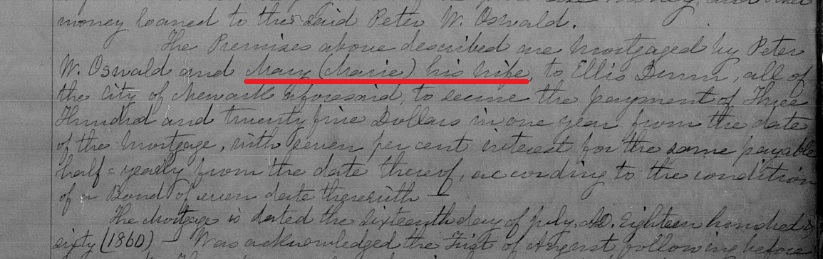 money loaned to the said Peter W. Oswald.
The Premises above described are Mortgaged by Peter
W. Oswald and Mary (Marie) his wife, to Ellis Dunn, all of
the City of Newark aforesaid, to secure the payment of Three
Hundred and twenty five Dollars in one year from the date
of the Mortgage, with seven per cent interest for the same payable
half=yearly from the date thereof, according to the condition
of a Bond of even date therewith —
The Mortgage is dated the sixteenth day of July, AD. Eighteen hundred &
sixty (1860) — Was acknowledged the First of August, following before